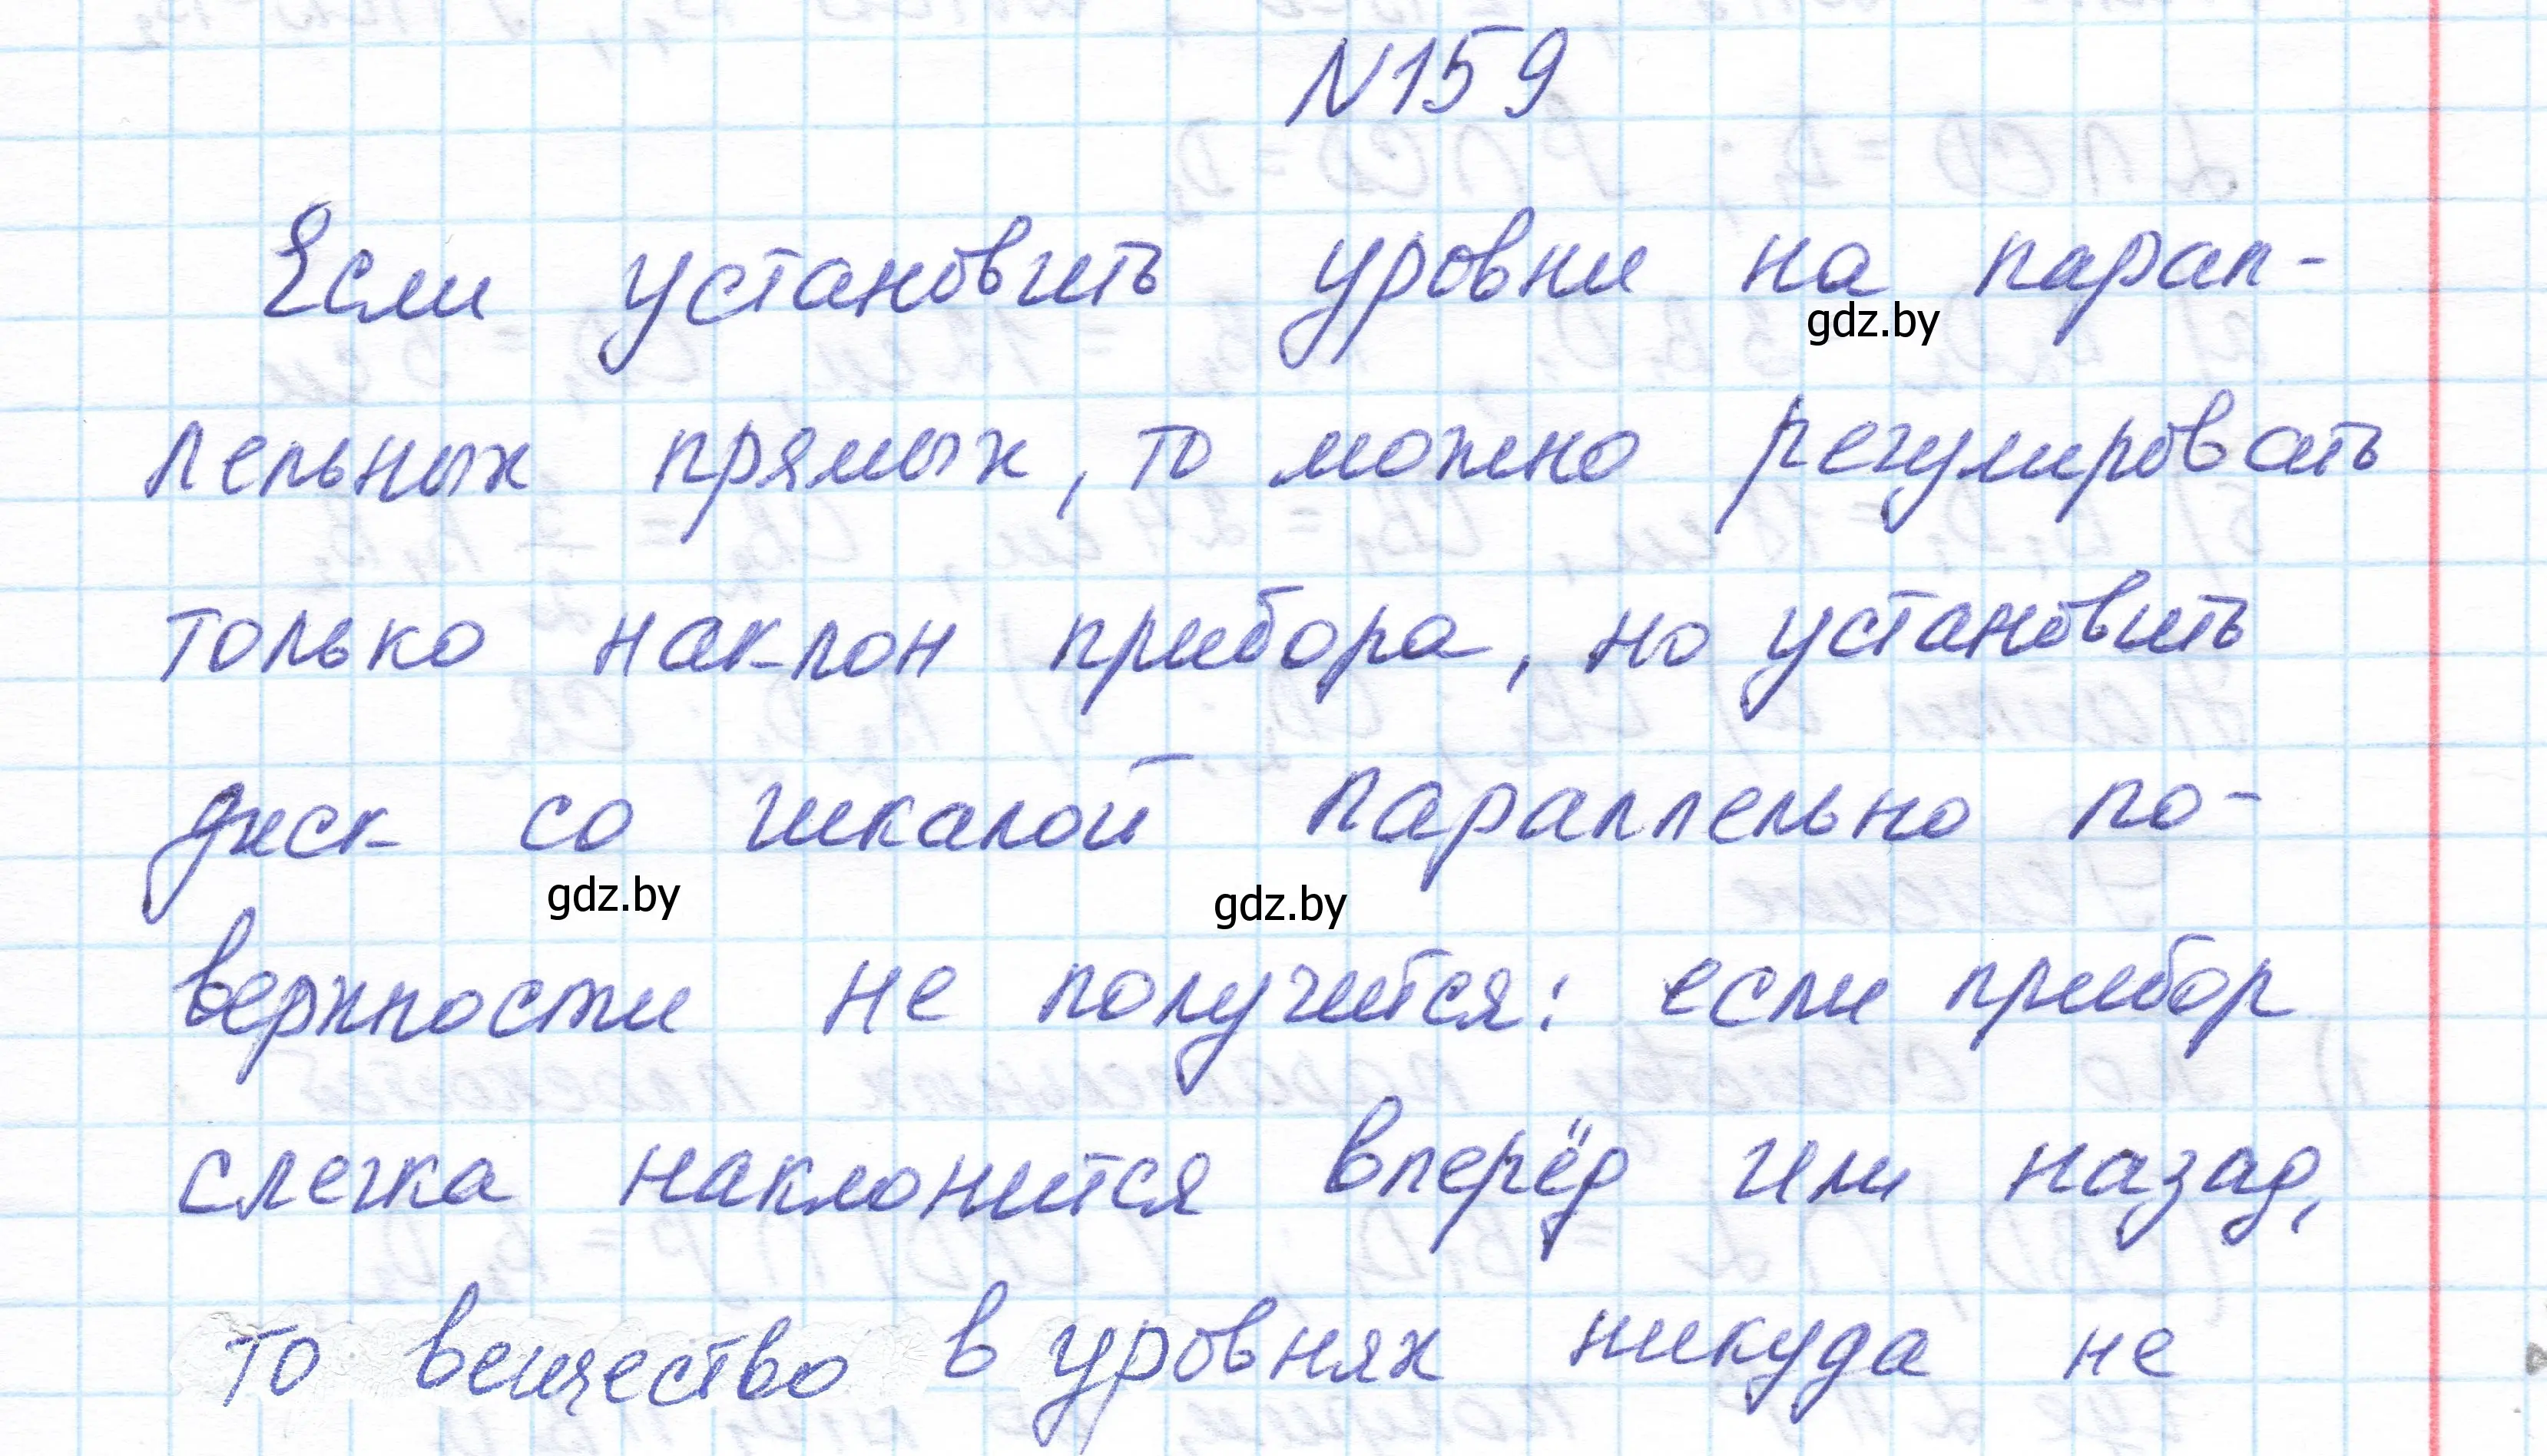 N159
Если установить уровни на парал-
gdz.by
лельных прямых, то можно регулировать
только наклон прибора, но установить
диск со шкалой параллельно по-
gdz.by gdz.by
верхности не получится: если прибор
слегка наклонится вперёд или назад,
то вещество в уровнях никуда не